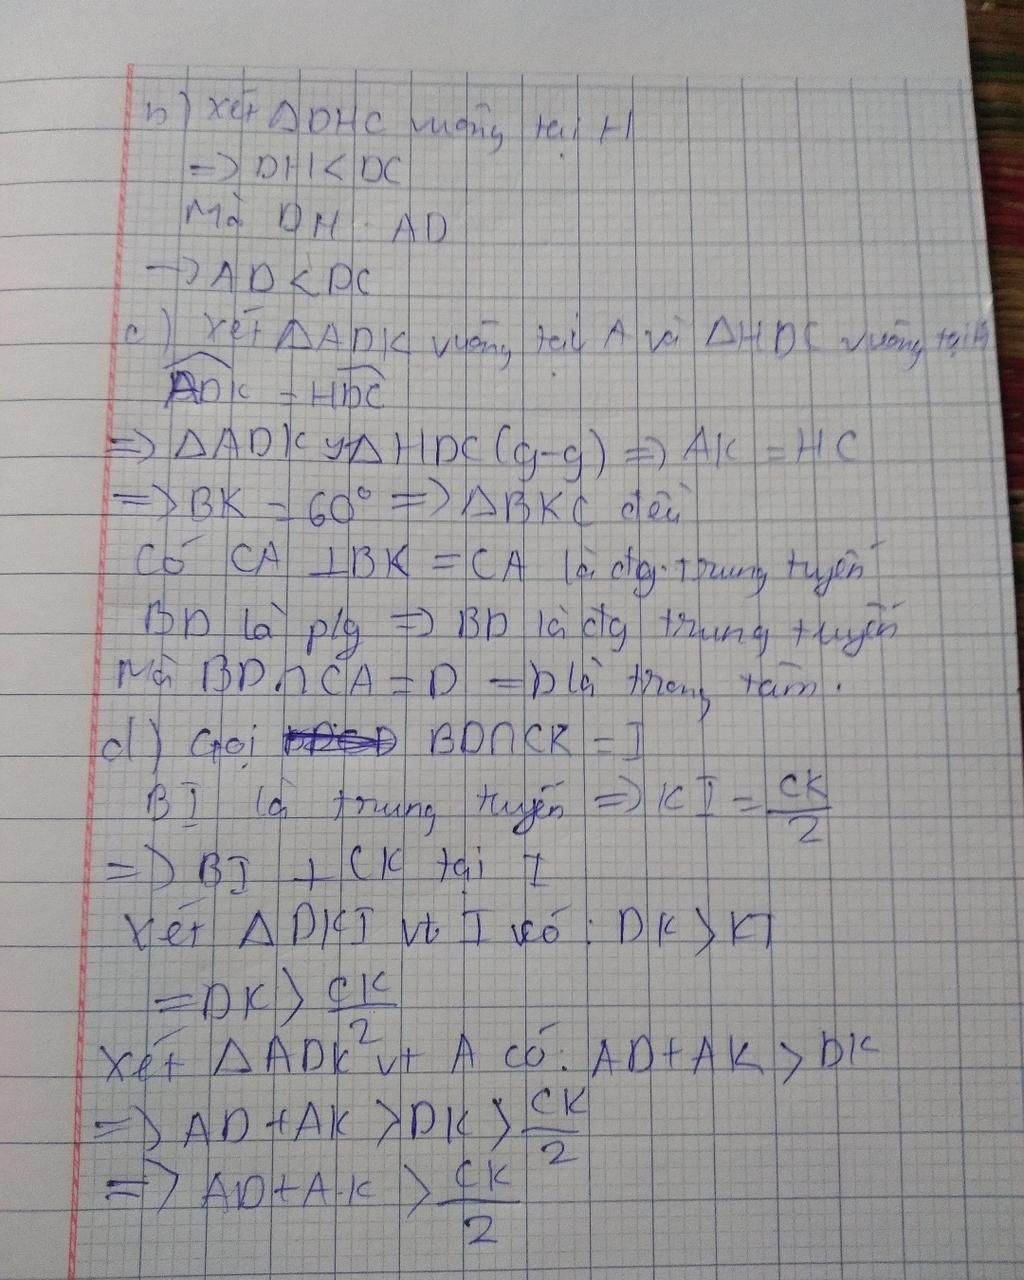 b) Xét ΔDHC vuông tại H
=> DH < DC
Mà DH = AD
=> AD < DC
c) Xét ΔADK vuông tại A và ΔHDC vuông tại H
ADK = HDC
=> ΔADK ΔHDC (g-g) => AK = HC
=> BK = 60° => ΔBKC đều
Có CA ⊥ BK = CA là đg trung tuyến
BD là p/g => BD là đg trung tuyến
Mà BD ∩ CA = D = D là trọng tâm.
d) Gọi BD ∩ CK = I
BI là trung tuyến => KI = CK/2
=> BI ⊥ CK tại I
Xét ΔDKI vt I có : DK > KI
= DK > CK/2
Xét ΔADK vt A có : AD + AK > DK
=> AD + AK > DK > CK/2
=> AD + AK > CK/2